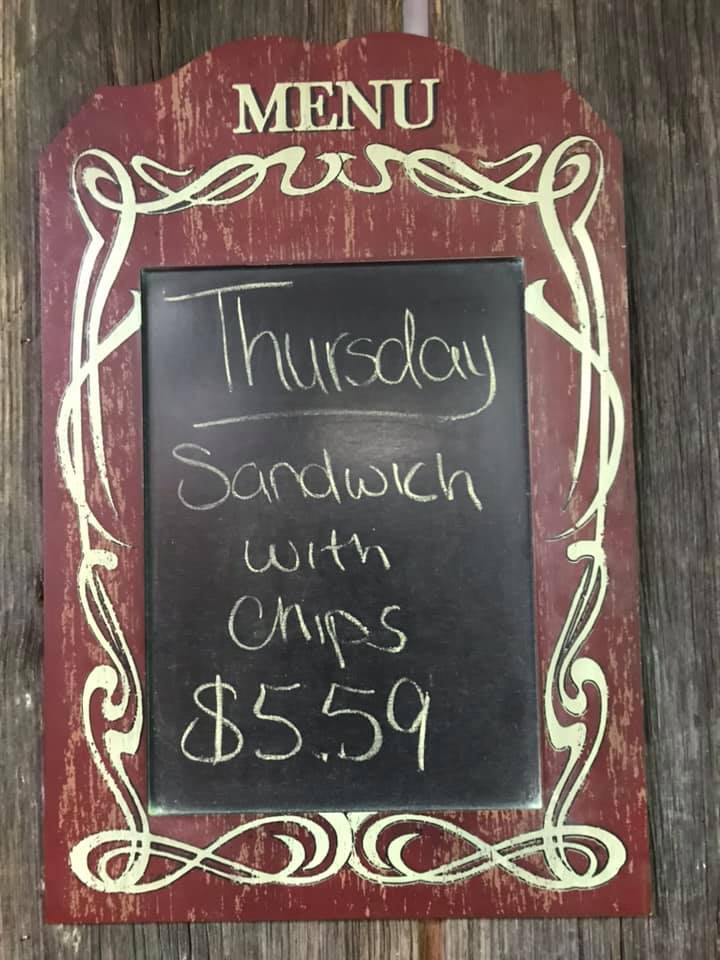 MENU
Thursday
Sandwich
with
Chips
$5.59